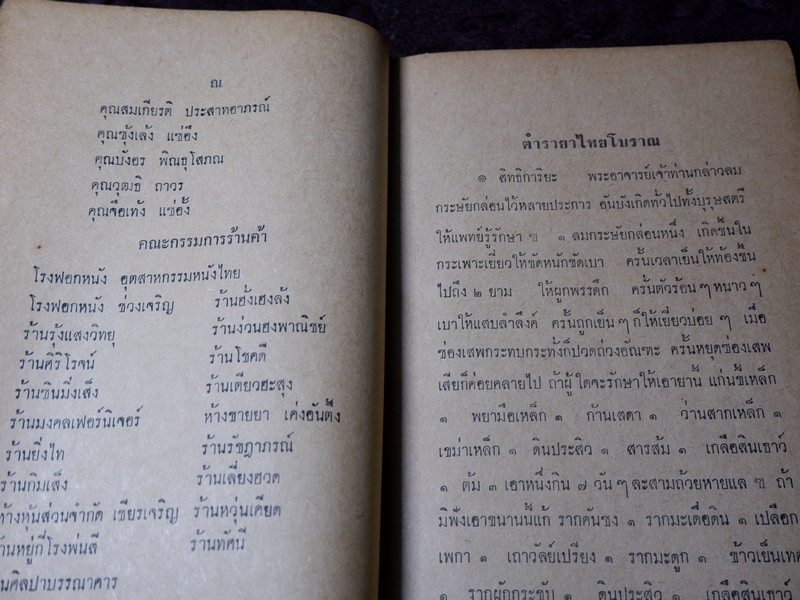 ณ
คุณสมเกียรติ ประสาทอาภรณ์
คุณซุ้งเล้ง แซ่อึ้ง
คุณบังอร พิณธุโสภณ
คุณวุฒธิ ถาวร
คุณจือเท้ง แซ่อั้ง
คณะกรรมการร้านค้า
โรงฟอกหนัง อุตสาหกรรมหนังไทย
โรงฟอกหนัง ช่วงเจริญ ร้านฮั้งเฮงล้ง
ร้านรุ้งแสงวิทยุ ร้านง่วนฮงพาณิชย์
ร้านศิริโรจน์ ร้านโชคดี
ร้านซินมิ่งเส็ง ร้านเตียวฮะสุง
ร้านมงคลเฟอร์นิเจอร์ ห้างขายยา เค่งอันตึ๊ง
ร้านยิ่งไท ร้านรัชฎาภรณ์
ร้านกิมเส็ง ร้านเลี่ยงฮวด
ห้างหุ้นส่วนจำกัด เชียรเจริญ ร้านหวุ่นเคียด
ร้านหยู่กี่โรงพ่นสี ร้านทัศนี
ศิลปาบรรณาคาร
ตำรายาไทยโบราณ
๑ สิทธิการิยะ พระอาจารย์เจ้าท่านกล่าวลม
กระษัยกล่อนไว้หลายประการ อันบังเกิดทั่วไปทั้งบุรุษสตรี
ให้แพทย์รู้รักษา ฃ ๑ ลมกระษัยกล่อนหนึ่ง เกิดขึ้นใน
กระเพาะเยี่ยวให้ขัดหนักขัดเบา ครั้นเวลาเย็นให้ท้องขึ้น
ไปถึง ๒ ยาม ให้ผูกพรรดึก ครั้นตัวร้อน ๆ หนาว ๆ
เบาให้แสบลำลึงค์ ครั้นถูกเย็น ๆ ก็ให้เยี่ยวบ่อย ๆ เมื่อ
ซ่องเสพกระทบกระทั้งก็ปวดถ่วงอัณฑะ ครั้นหยุดซ่องเสพ
เสียก็ค่อยคลายไป ถ้าผู้ใดจะรักษาให้เอายานี้ แก่นขี้เหล็ก
๑ พยามือเหล็ก ๑ ก้านเสดา ๑ ว่านสากเหล็ก ๑
เขม่าเหล็ก ๑ ดินประสิว ๑ สารส้ม ๑ เกลือสินเธาว์
๑ ต้ม ๓ เอาหนึ่งกิน ๗ วัน ๆ ละสามถ้วยหายแล ฃ ถ้า
มิฟังเอาขนานนี้แก้ รากคันซง ๑ รากมะเดื่อดิน ๑ เปลือก
เพกา ๑ เถาวัลย์เปรียง ๑ รากมะดูก ๑ ข้าวเย็นเทศ
๑ รากผักกระชับ ๑ ดินประสิว ๑ เกลือสินเธาว์